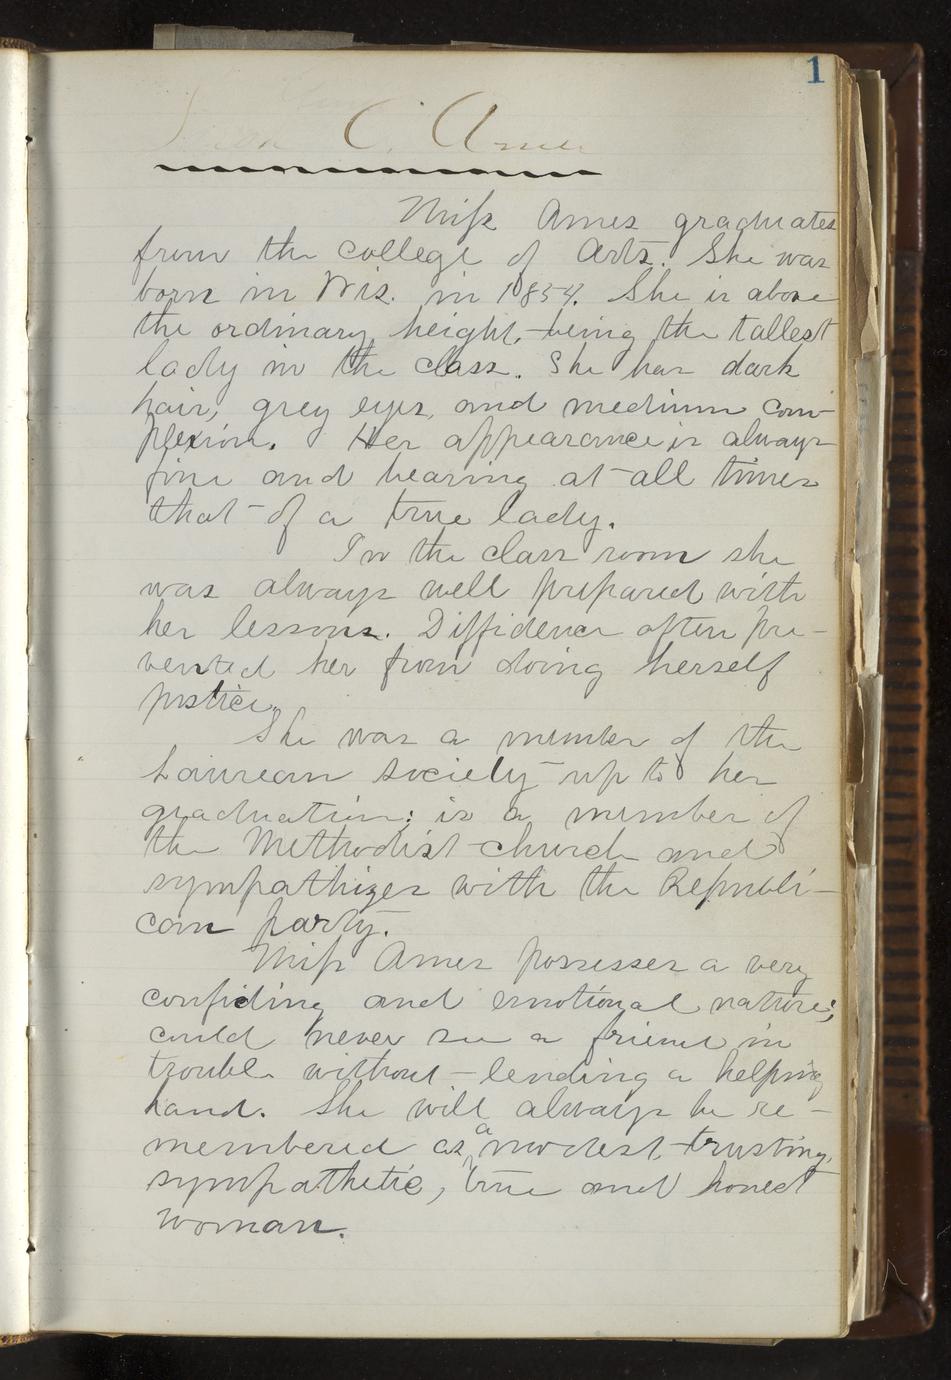 1
C. Ames
Miss Ames graduates
from the college of Arts. She was
born in Wis. in 1854. She is above
the ordinary height, being the tallest
lady in the class. She has dark
hair, grey eyes, and medium com-
plexion. Her appearance is always
fine and bearing at all times
that of a true lady.
In the class room she
was always well prepared with
her lessons. Diffidence often pre-
vented her from doing herself
justice.
She was a member of the
Laurean society up to her
graduation; is a member of
the Methodist church and
sympathizes with the Republi-
can party.
Miss Ames possesses a very
confiding and emotional nature;
could never see a friend in
trouble without lending a helping
hand. She will always be re-
membered as a modest, trusting,
sympathetic, true and honest
woman.